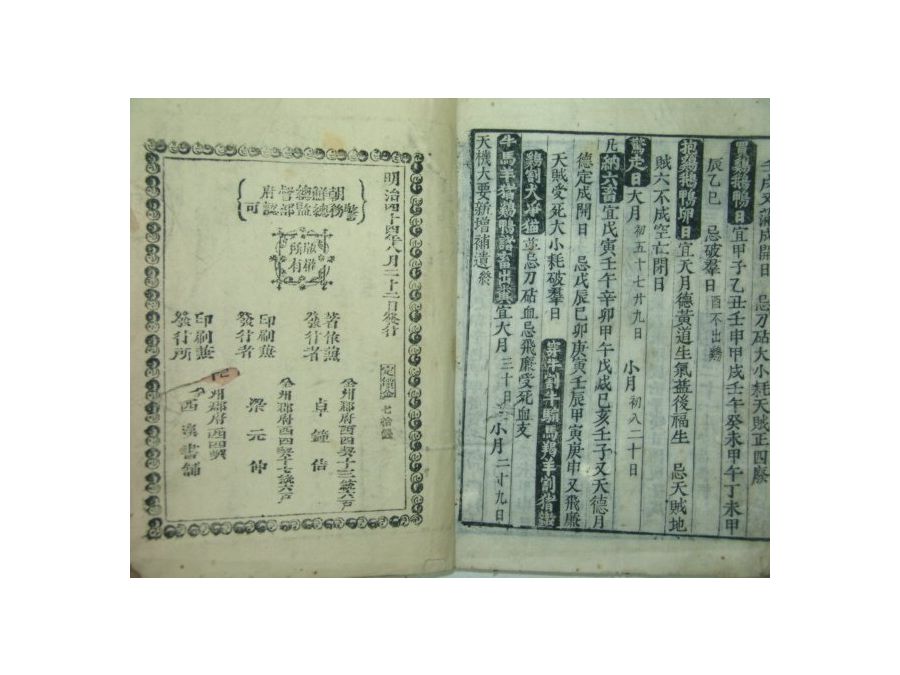 壬戌又滿成開日 忌刀砧大小耗天賊正四廢
買鷄鵝鴨日宜甲子乙丑壬申甲戌壬午癸未甲午丁未甲
辰乙巳 忌破羣日 酉不出鷄
抱鷄鵝鴨卵日宜天月德黃道生氣益後福生 忌天賊地
賊六不成空亡閉日
鶩走日大月初五十七廿九日 小月初八二十日
凡納六畜宜戊寅壬午辛卯甲午戊戌己亥壬子又天德月
德定成開日 忌戊辰己卯庚寅壬辰甲寅庚申又飛廉
天賊受死大小耗破羣日
忌刀砧血忌飛廉受死血支
牛馬羊猪鷄鴨諸畜出 宜大月三十日 小月二十九日
天機大要新增補遺 終
明治四十四年八月二十二日發行
朝鮮總督府
警務總監部認可
版權所有
定價金七拾錢
著作兼發行者
全州郡府西四契十三統六戶
卓鐘佶
印刷兼發行者
全州郡府西四契十七統六戶
梁元仲
印刷兼發行所
全州郡府西四契
西溪書鋪